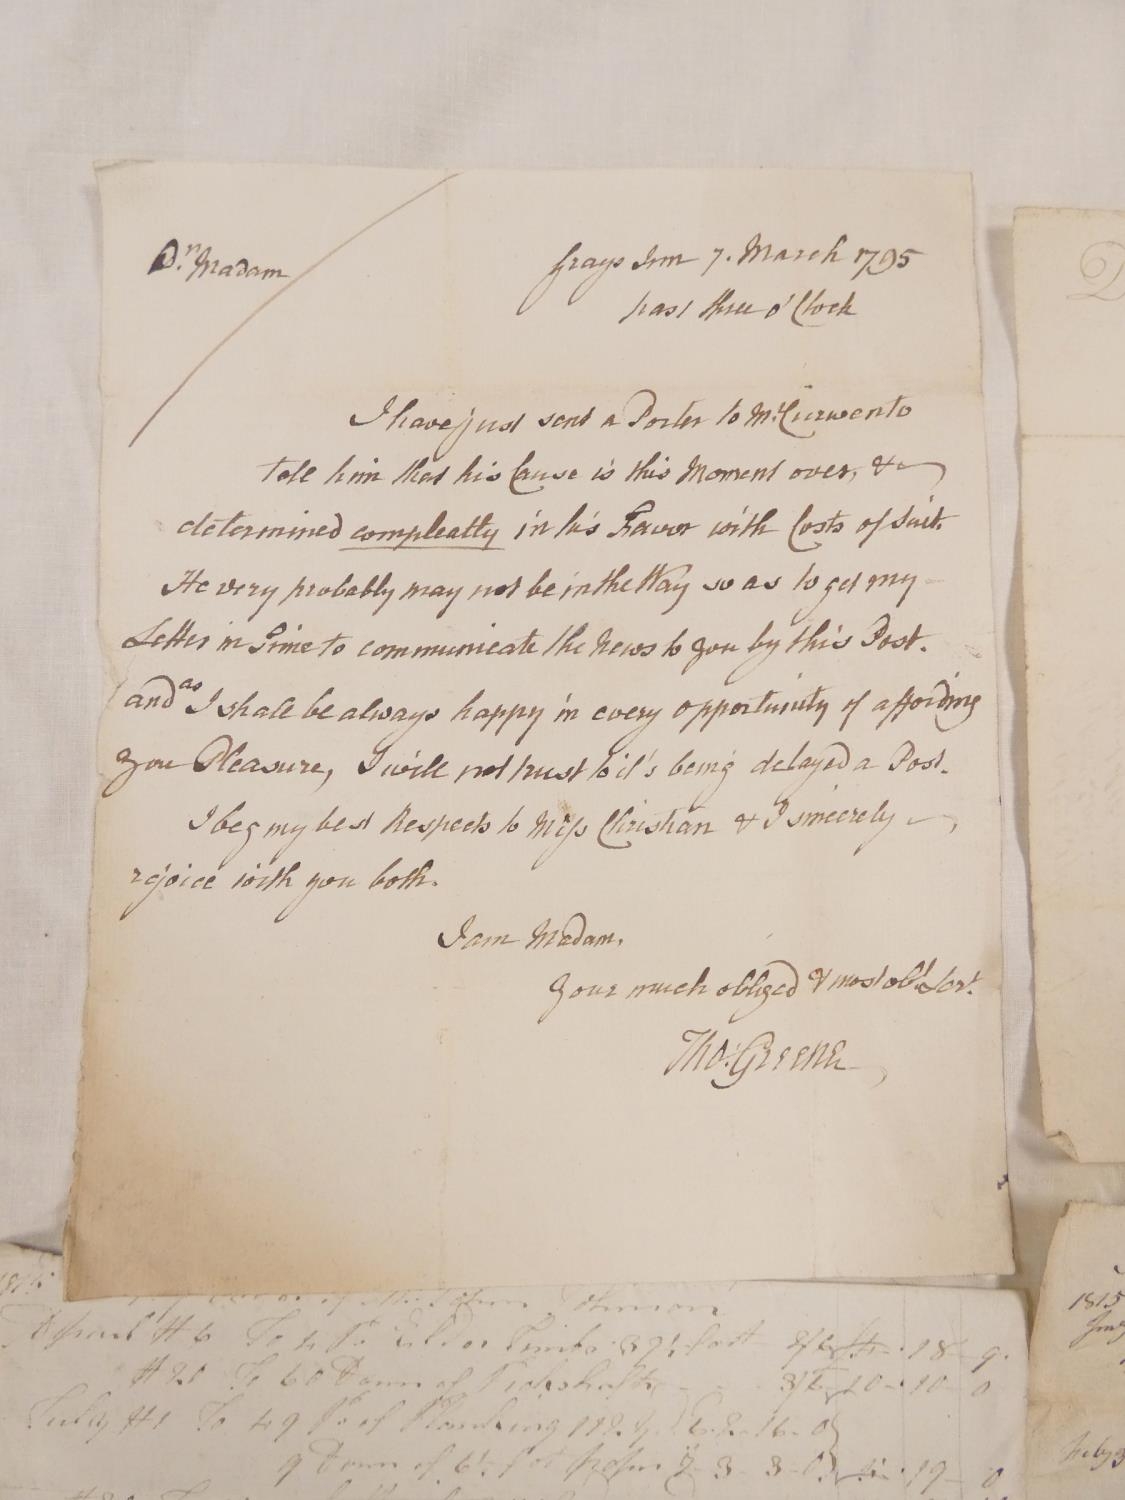 Dr. Madam
Grays Inn 7. March 1795
past three o'Clock
I have just sent a Porter to Mr. Curwen to
tell him that his Cause is this Moment over, &
determined compleatly in his Favor with Costs of Suit.
He very probably may not be in the Way so as to get my
Letter in Time to communicate the News to you by this Post.
and as I shall be always happy in every opportunity of affording
you Pleasure, I will not trust to it's being delayed a Post.
I beg my best Respects to Miss Christian & I sincerely
rejoice with you both.
I am Madam,
Your much obliged & most obt. Servt.
Thos. Greene
Johnson
8/6 18 9
# 20 To 60 Down of 3/6 10 10 0
July # 1 To 49 of Planking 2 16 0
9 Down of 3 3 0 19 0
1815
July